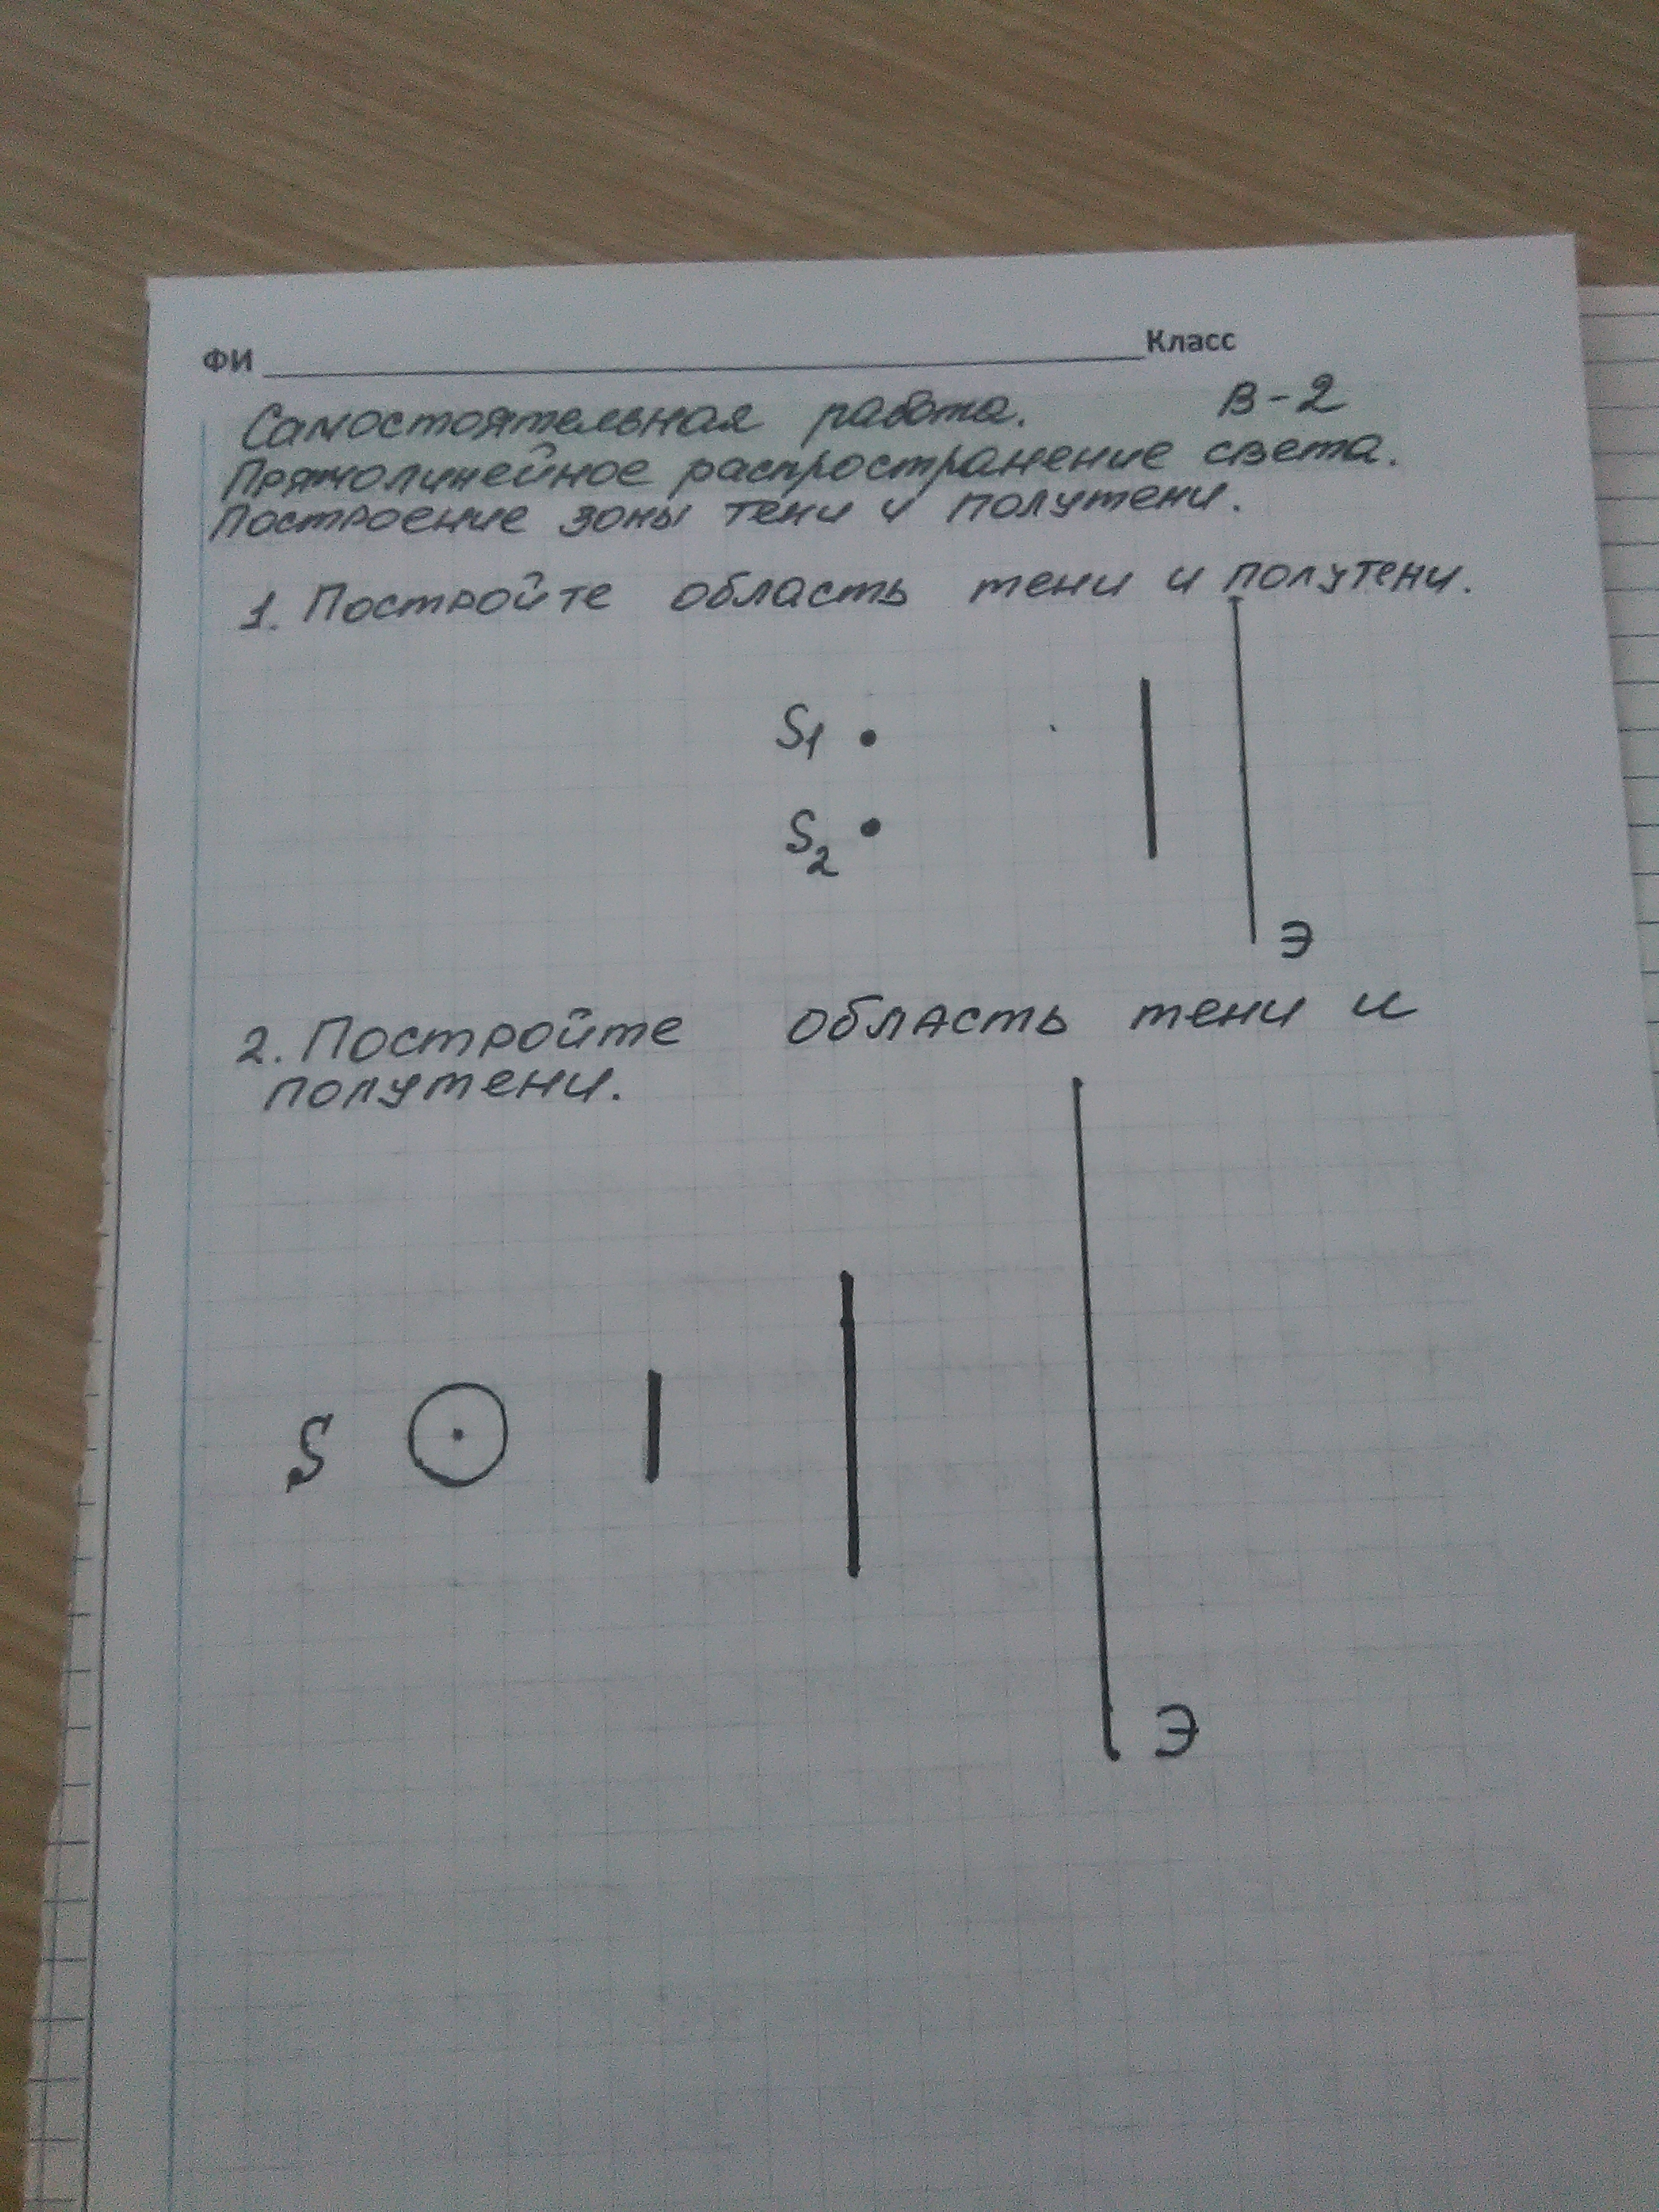 ФИ Класс
Самостоятельная работа. В-2
Прямолинейное распространение света.
Построение зоны тени и полутени.
1. Постройте область тени и полутени.
S1
S2
Э
2. Постройте область тени и
полутени.
S
Э